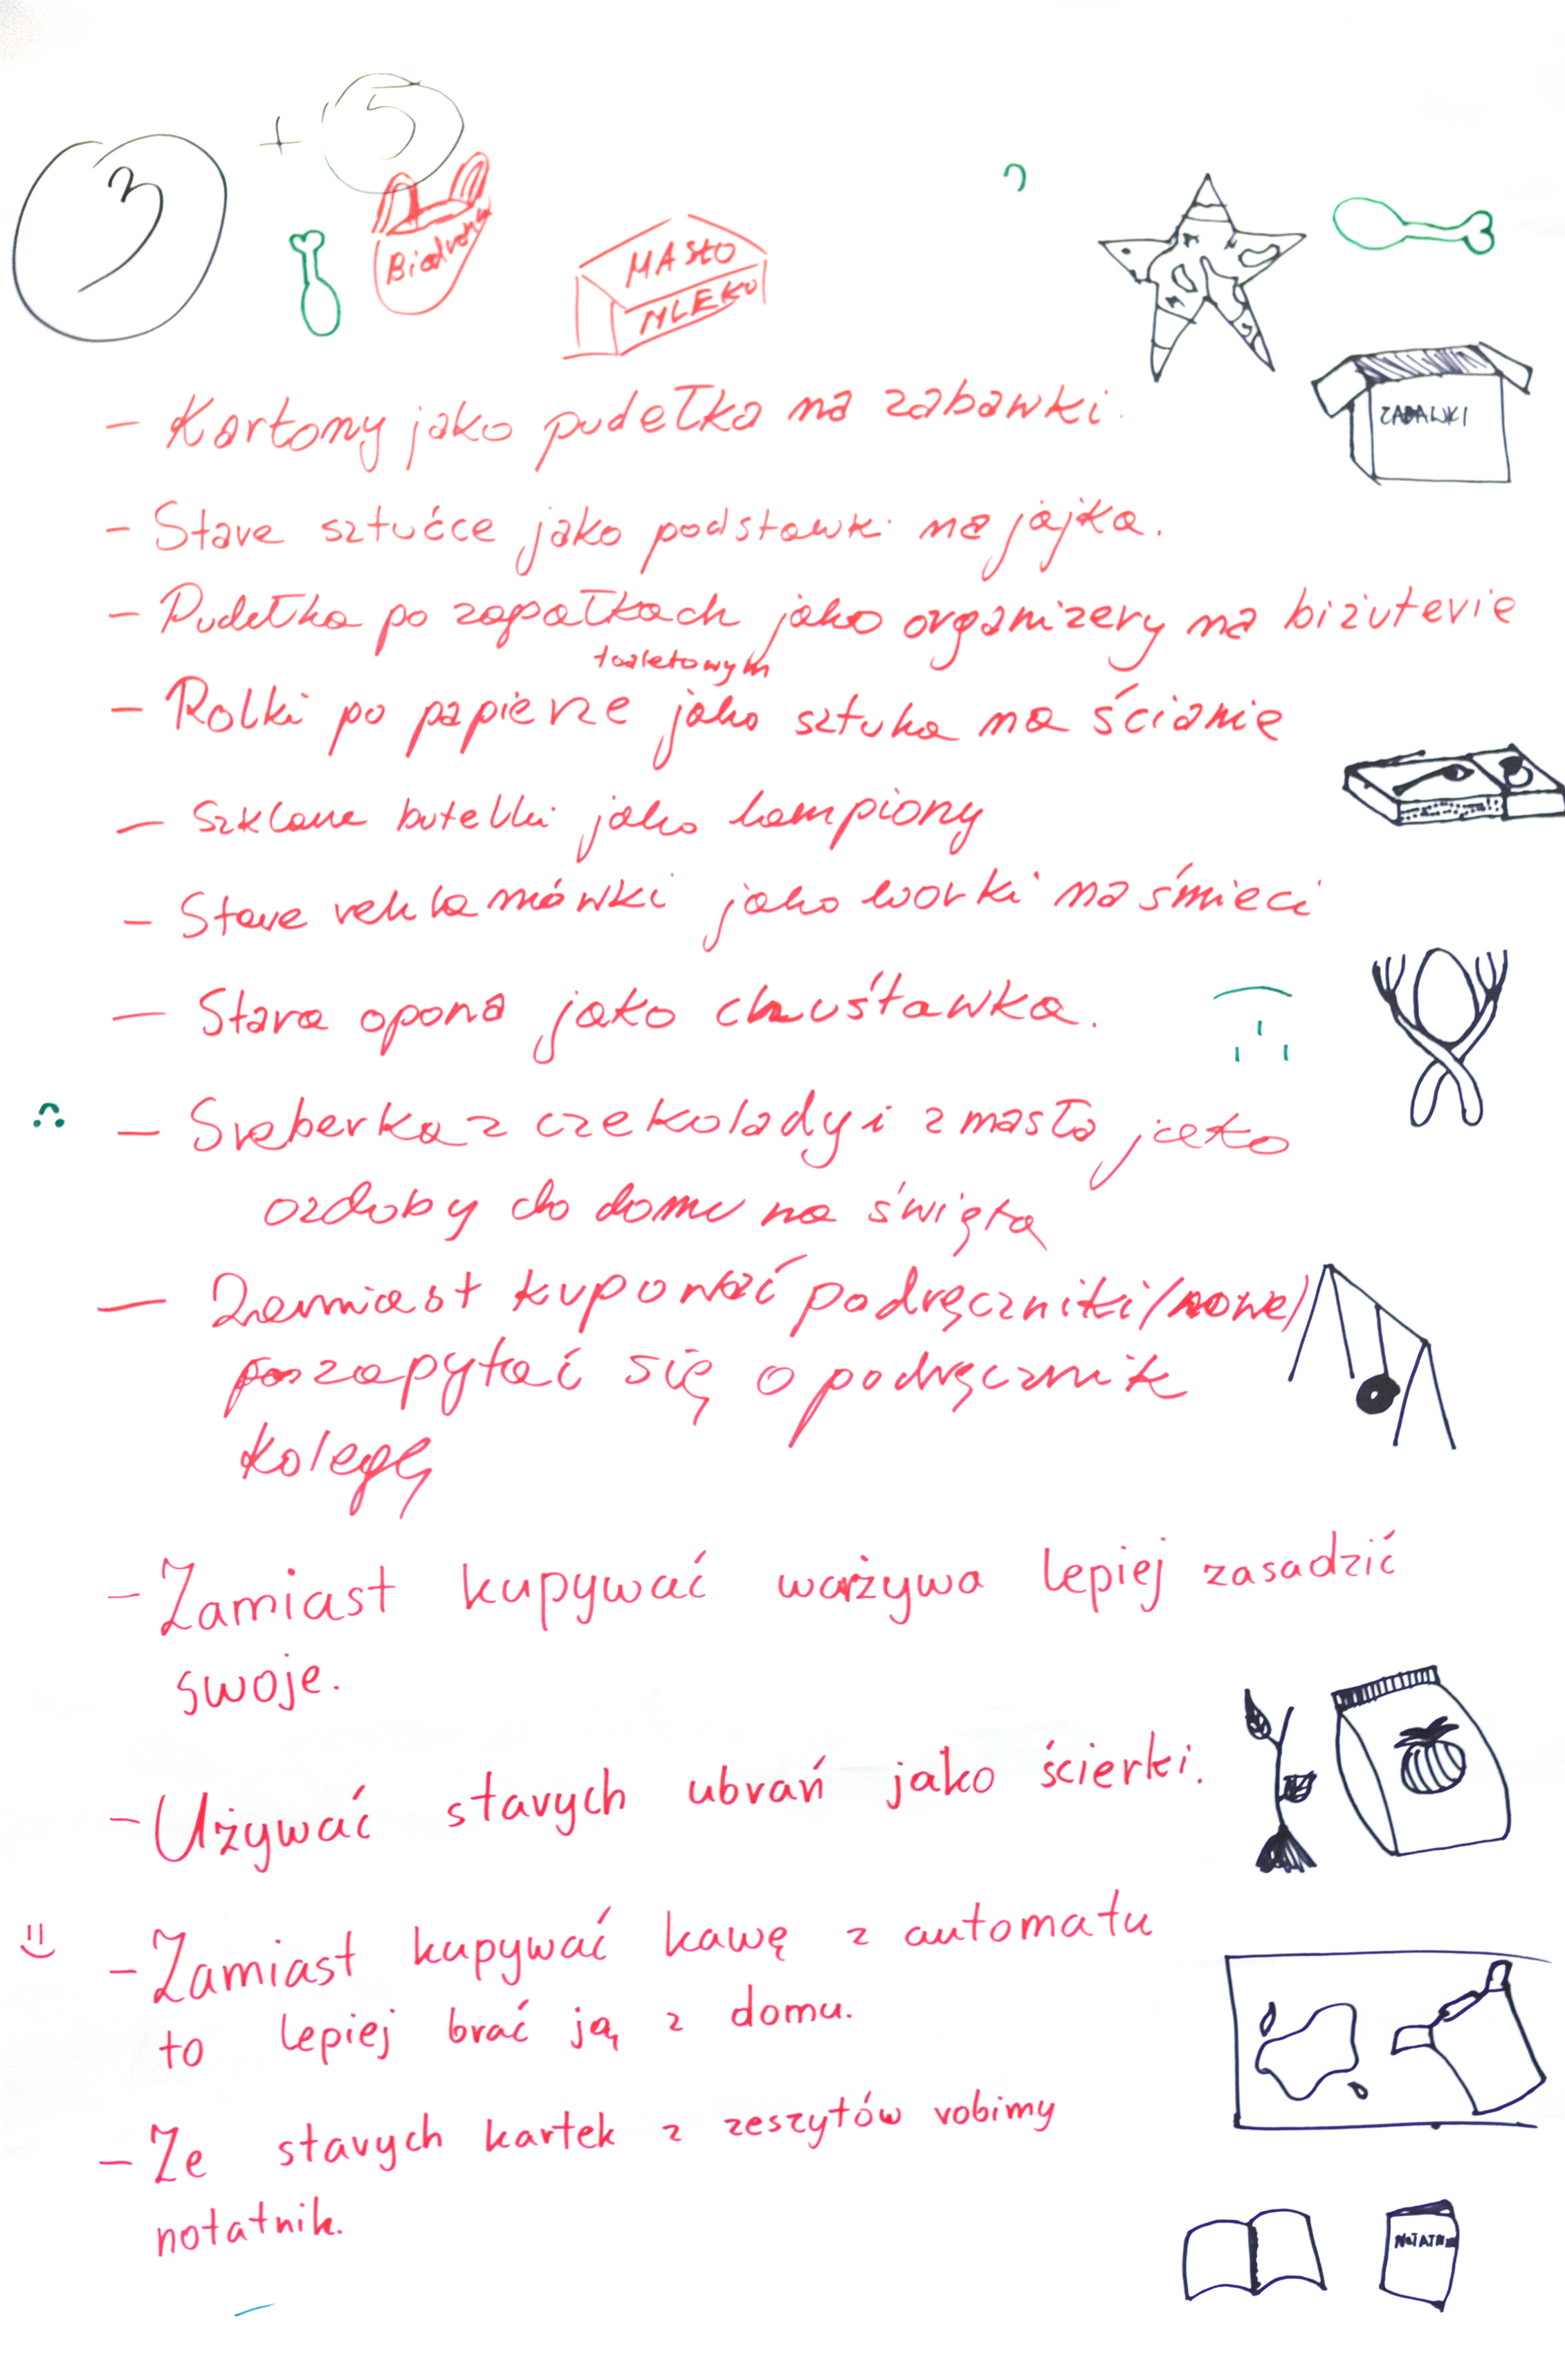 3 + 5
Biedronka
MASŁO
MLEKO
ZABAWKI
- Kartony jako pudełka na zabawki.
- Stare sztućce jako podstawki na jajka.
- Pudełka po zapałkach jako organizery na biżuterie
toaletowym
- Rolki po papierze jako sztuka na ścianie
- Szklane butelki jako lampiony
- Stare reklamówki jako worki na śmieci
- Stara opona jako chuśtawka.
- Sreberka z czekolady i z masła jako
ozdoby do domu na święta
- Zamiast kupować podręczniki (nowe)
zapytać się o podręcznik
kolegę
- Zamiast kupywać warzywa lepiej zasadzić
swoje.
- Używać starych ubrań jako ścierki.
- Zamiast kupywać kawę z automatu
to lepiej brać ją z domu.
- Ze starych kartek z zeszytów robimy
notatnik.
NOTATNIK